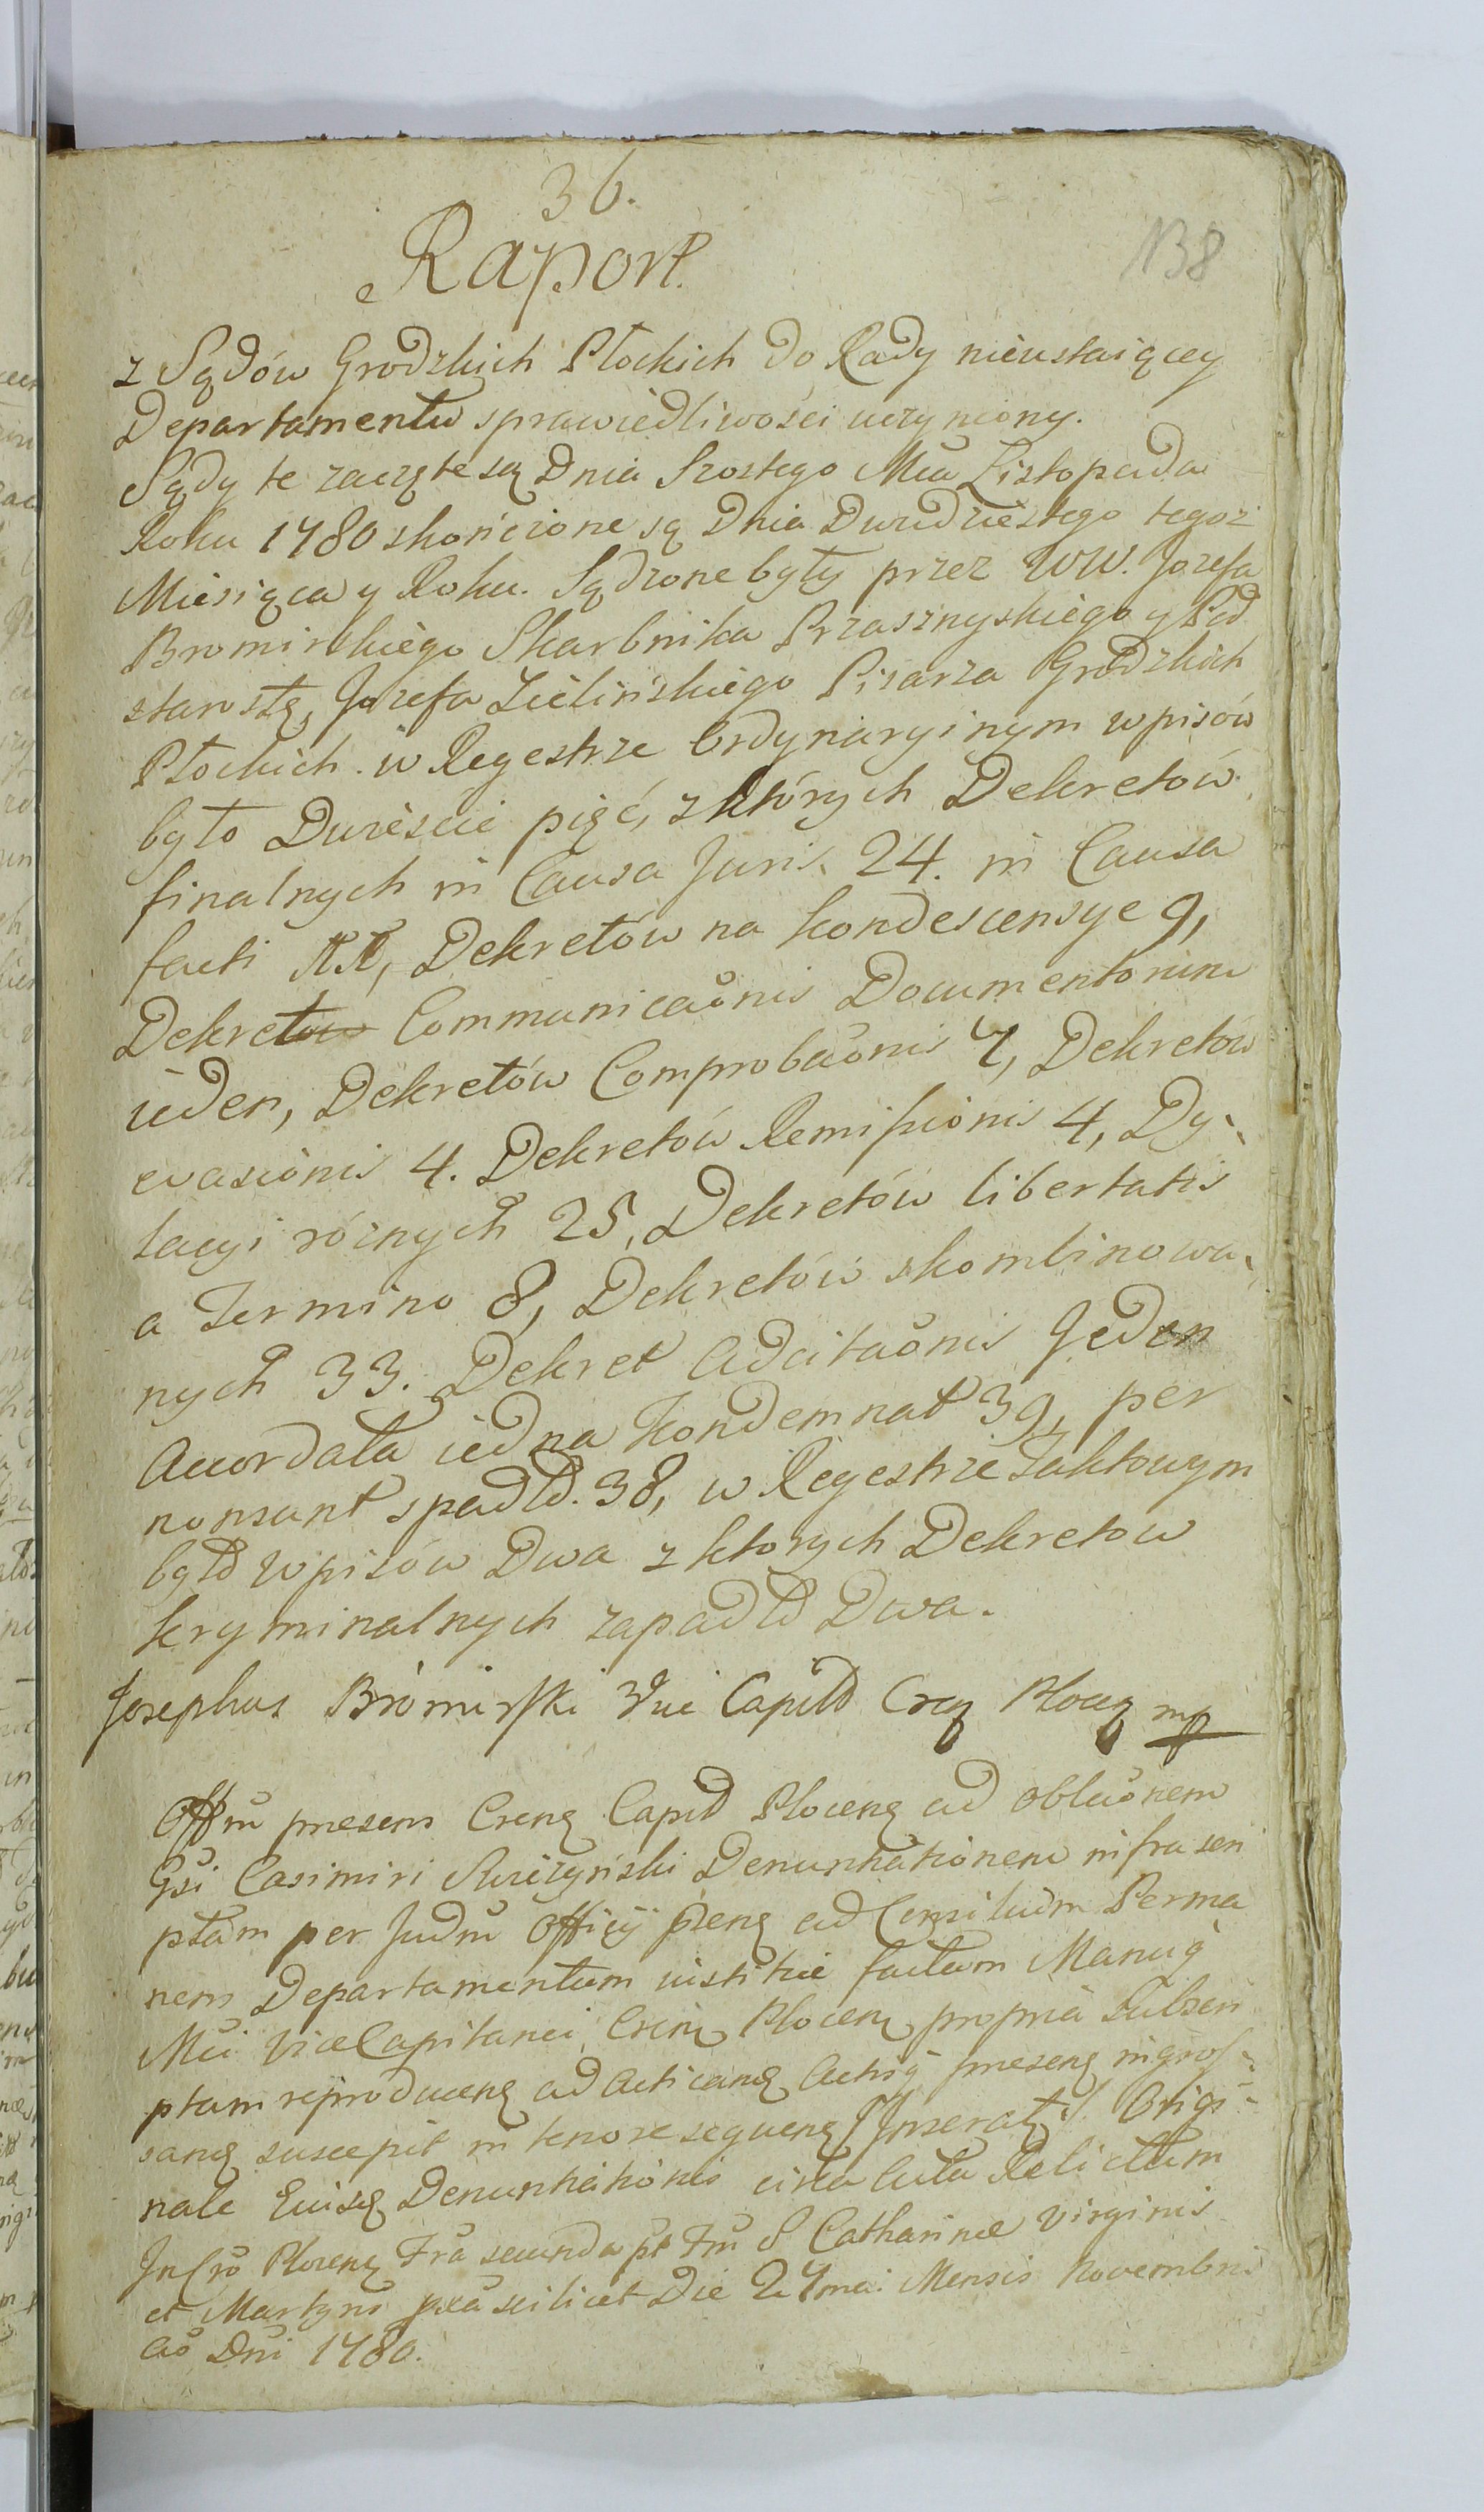 36.
138
Raport.
z Sądów Grodzkich Płockich do Rady nieustaiącey
Departamentu sprawiedliwości uczyniony.
Sądy te zaczęte są Dnia Szostego Mca Listopada
Roku 1780 skończone są Dnia Dwudziestego tegoż
Miesiąca y Roku. Sądzone były przez WW. Jozefa
Bromirskiego Skarbnika Przasznyskiego y Pod
starostę, Jozefa Zielińskiego Pisarza Grodzkich
Płockich. w Regestrze Ordynaryinym wpisów
było Dwieście pięć, z których Dekretów
finalnych in Causa Juris 24. in Causa
facti Dekretów na kondescensye 9,
Dekretow Communicaõnis Documentorum
ieden, Dekretów Comprobaõnis 7, Dekretow
evasionis 4. Dekretów Remissionis 4, Dy-
lacyi róznych 25, Dekretów libertatis
a Termino 8, Dekretów skombinowa-
nych 33. Dekret Adcitaõnis Jeden
Accordata iedna Kondemnat 39, per
nonsunt spadło. 38, w Regestrze Taktowym
było wpisów Dwa z ktorych Dekretow
kryminalnych zapadło Dwa.
Josephus Bromirski Vice Capit Płocen mp
Offm presens Crens Capit Plocens ad oblaõnem
Gsi Casimiri Denuntiationem infrascri
ptam per Judm Officij ad Consilium Perma
nens Departamentum iustitiae factam Manuq
Mci ViceCapitanei Plocens propria Subscri
ptam reproducens ad acticand Actisq presens ingros-
sand suscepit in tenore sequens /Inserat:/ Origi-
nale Denuntiationis circa Acta Relictum
In Plocens Fra secunda pt Fm S Catharinae Virginis
et Martyris scilicet Die 27ma Mensis Novembris
Aõ Dni 1780.